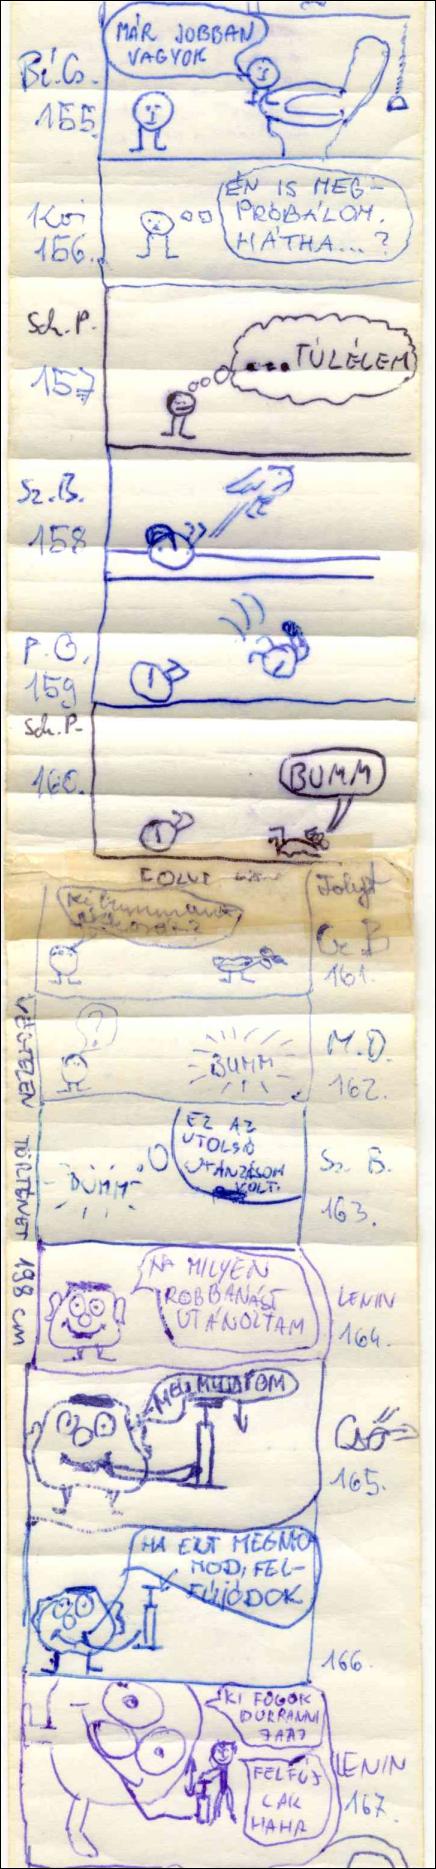 MÁR JOBBAN
VAGYOK
Bé.Cs.
155.
ÉN IS MEG-
PRÓBÁLOM,
HÁTHA...?
156.
Sch.P.
...TÚLÉLEM
157
Sz.B.
158
P.G.
159
Sch.P.
160.
BUMM
FOLYT
161.
?
BUMM
M.O.
162.
VÉGTELEN TÖRTÉNET 198 cm
EZ AZ
UTOLSÓ
UTÁNZÁSOM
VOLT.
BUMM
Sz. B.
163.
NA MILYEN
ROBBANÁST
UTÁNOZTAM
LENIN
164.
MEGMUTATOM
Cső
165.
HA EZT MEGNYO
MOD, FEL-
FÚJÓDOK
166.
KI FOGOK
DURRANNI
JAAJ
FELFÚJ
LAK
HAHA
LENIN
167.